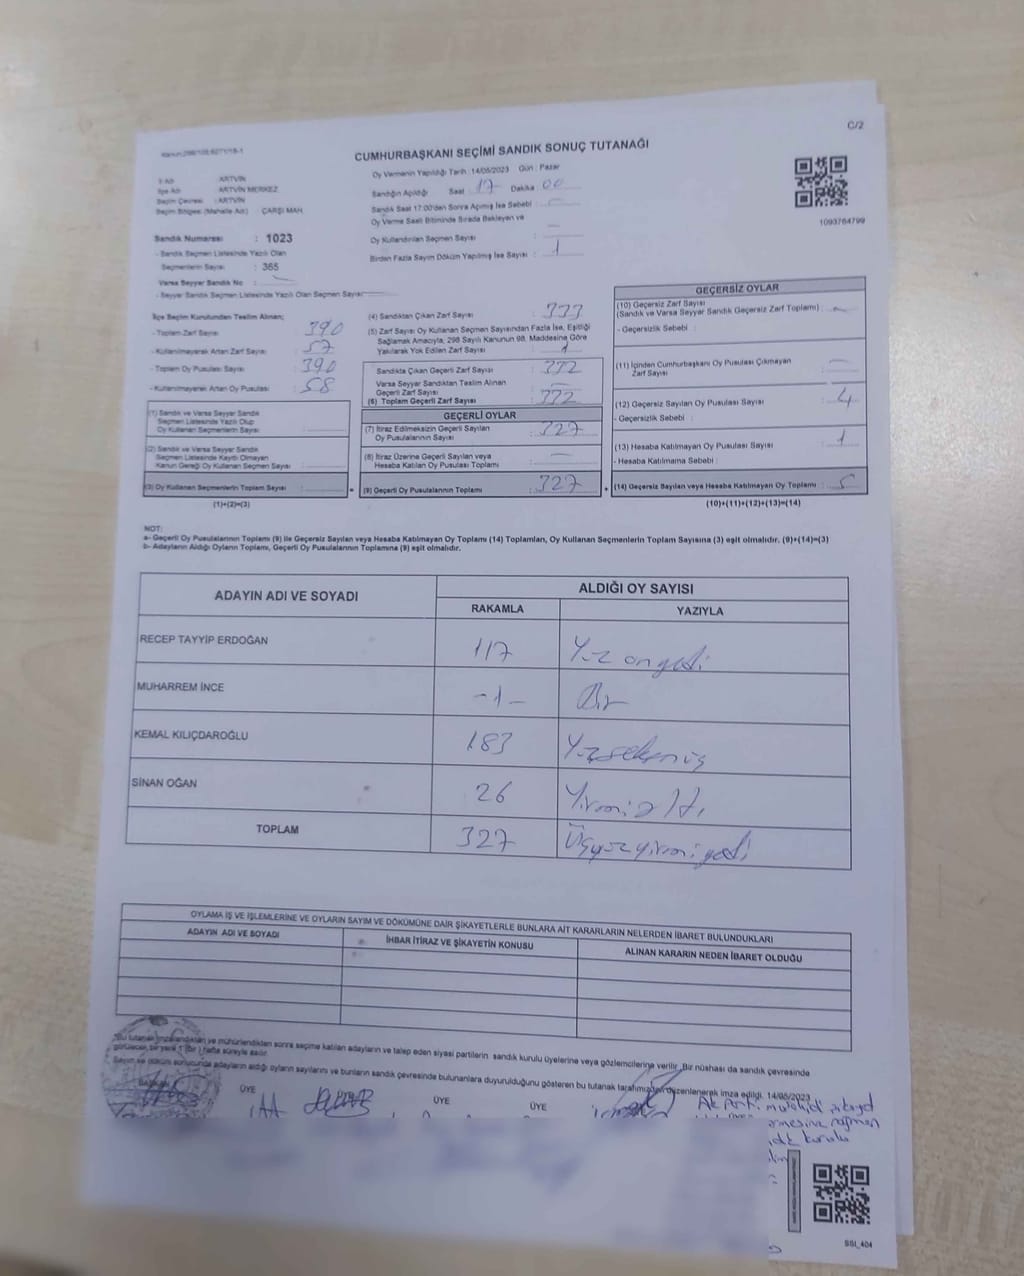 C/2
CUMHURBAŞKANI SEÇİMİ SANDIK SONUÇ TUTANAĞI
İl Adı : ARTVİN
İlçe Adı : ARTVİN MERKEZ
Seçim Çevresi : ARTVİN
Seçim Bölgesi (Mahalle Adı) : ÇARŞI MAH.
Sandık Numarası : 1023
- Sandık Seçmen Listesinde Yazılı Olan
Seçmenlerin Sayısı : 365
Varsa Seyyar Sandık No :
- Seyyar Sandık Seçmen Listesinde Yazılı Olan Seçmen Sayısı
Oy Vermenin Yapıldığı Tarih : 14/05/2023 Gün : Pazar
Sandığın Açıldığı Saat 17 Dakika 00
Sandık Saat 17:00'den Sonra Açılmış İse Sebebi : —
Oy Verme Saati Bitiminde Sırada Bekleyen ve
Oy Kullandırılan Seçmen Sayısı : —
Birden Fazla Sayım Döküm Yapılmış İse Sayısı : 1
1093764799
İlçe Seçim Kurulundan Teslim Alınan;
- Toplam Zarf Sayısı : 390
- Kullanılmayarak Artan Zarf Sayısı : 57
- Toplam Oy Pusulası : 390
- Kullanılmayarak Artan Oy Pusulası : 58
(1) Sandık ve Varsa Seyyar Sandık
Seçmen Listesinde Yazılı Olup
Oy Kullanan Seçmen Sayısı :
(2) Sandık ve Varsa Seyyar Sandık
Seçmen Listesinde Kayıtlı Olmayan
Kanun Gereği Oy Kullanan Seçmen Sayısı :
(3) Oy Kullanan Seçmenlerin Toplam Sayısı :
(1)+(2)=(3)
(4) Sandıktan Çıkan Zarf Sayısı : 333
(5) Zarf Sayısı Oy Kullanan Seçmen Sayısından Fazla İse, Eşitliği
Sağlamak Amacıyla, 298 Sayılı Kanunun 98. Maddesine Göre
Yakılarak Yok Edilen Zarf Sayısı : 1
Sandıkta Çıkan Geçerli Zarf Sayısı : 332
Varsa Seyyar Sandıktan Teslim Alınan
Geçerli Zarf Sayısı : —
(6) Toplam Geçerli Zarf Sayısı : 332
GEÇERLİ OYLAR
(7) İtiraz Edilmeksizin Geçerli Sayılan
Oy Pusulalarının Sayısı : 327
(8) İtiraz Üzerine Geçerli Sayılan veya
Hesaba Katılan Oy Pusulası Toplamı : —
(9) Geçerli Oy Pusulalarının Toplamı : 327
GEÇERSİZ OYLAR
(10) Geçersiz Zarf Sayısı
(Sandık ve Varsa Seyyar Sandık Geçersiz Zarf Toplamı) : —
- Geçersizlik Sebebi :
(11) İçinden Cumhurbaşkanı Oy Pusulası Çıkmayan
Zarf Sayısı : —
(12) Geçersiz Sayılan Oy Pusulası Sayısı : 4
- Geçersizlik Sebebi :
(13) Hesaba Katılmayan Oy Pusulası Sayısı : 1
- Hesaba Katılmama Sebebi :
(14) Geçersiz Sayılan veya Hesaba Katılmayan Oy Toplamı : 5
(10)+(11)+(12)+(13)=(14)
NOT:
a- Geçerli Oy Pusulalarının Toplamı (9) ile Geçersiz Sayılan veya Hesaba Katılmayan Oy Toplamı (14) Toplamları, Oy Kullanan Seçmenlerin Toplam Sayısına (3) eşit olmalıdır. (9)+(14)=(3)
b- Adayların Aldığı Oyların Toplamı, Geçerli Oy Pusulalarının Toplamına (9) eşit olmalıdır.
ADAYIN ADI VE SOYADI
ALDIĞI OY SAYISI
RAKAMLA YAZIYLA
RECEP TAYYİP ERDOĞAN 117 Yüz onyedi
MUHARREM İNCE -1- Bir
KEMAL KILIÇDAROĞLU 183
SİNAN OĞAN 26 Yirmialtı
TOPLAM 327 Üçyüzyirmiyedi
OYLAMA İŞ VE İŞLEMLERİNE VE OYLARIN SAYIM VE DÖKÜMÜNE DAİR ŞİKAYETLERLE BUNLARA AİT KARARLARIN NELERDEN İBARET BULUNDUKLARI
ADAYIN ADI VE SOYADI
İHBAR İTİRAZ VE ŞİKAYETİN KONUSU
ALINAN KARARIN NEDEN İBARET OLDUĞU
*Bu tutanak imzalandıktan ve mühürlendikten sonra seçime katılan adayların ve talep eden siyasi partilerin sandık kurulu üyelerine veya gözlemcilerine verilir. Bir nüshası da sandık çevresinde
görülecek bir yere 1 (bir) hafta süreyle asılır.
Sayım ve döküm sonucunda adayların aldığı oyların sayılarını ve bunların sandık çevresinde bulunanlara duyurulduğunu gösteren bu tutanak tarafımızdan düzenlenerek imza edildi. 14/05/2023
BAŞKAN
ÜYE
ÜYE
ÜYE
Ak Parti
SSI_404